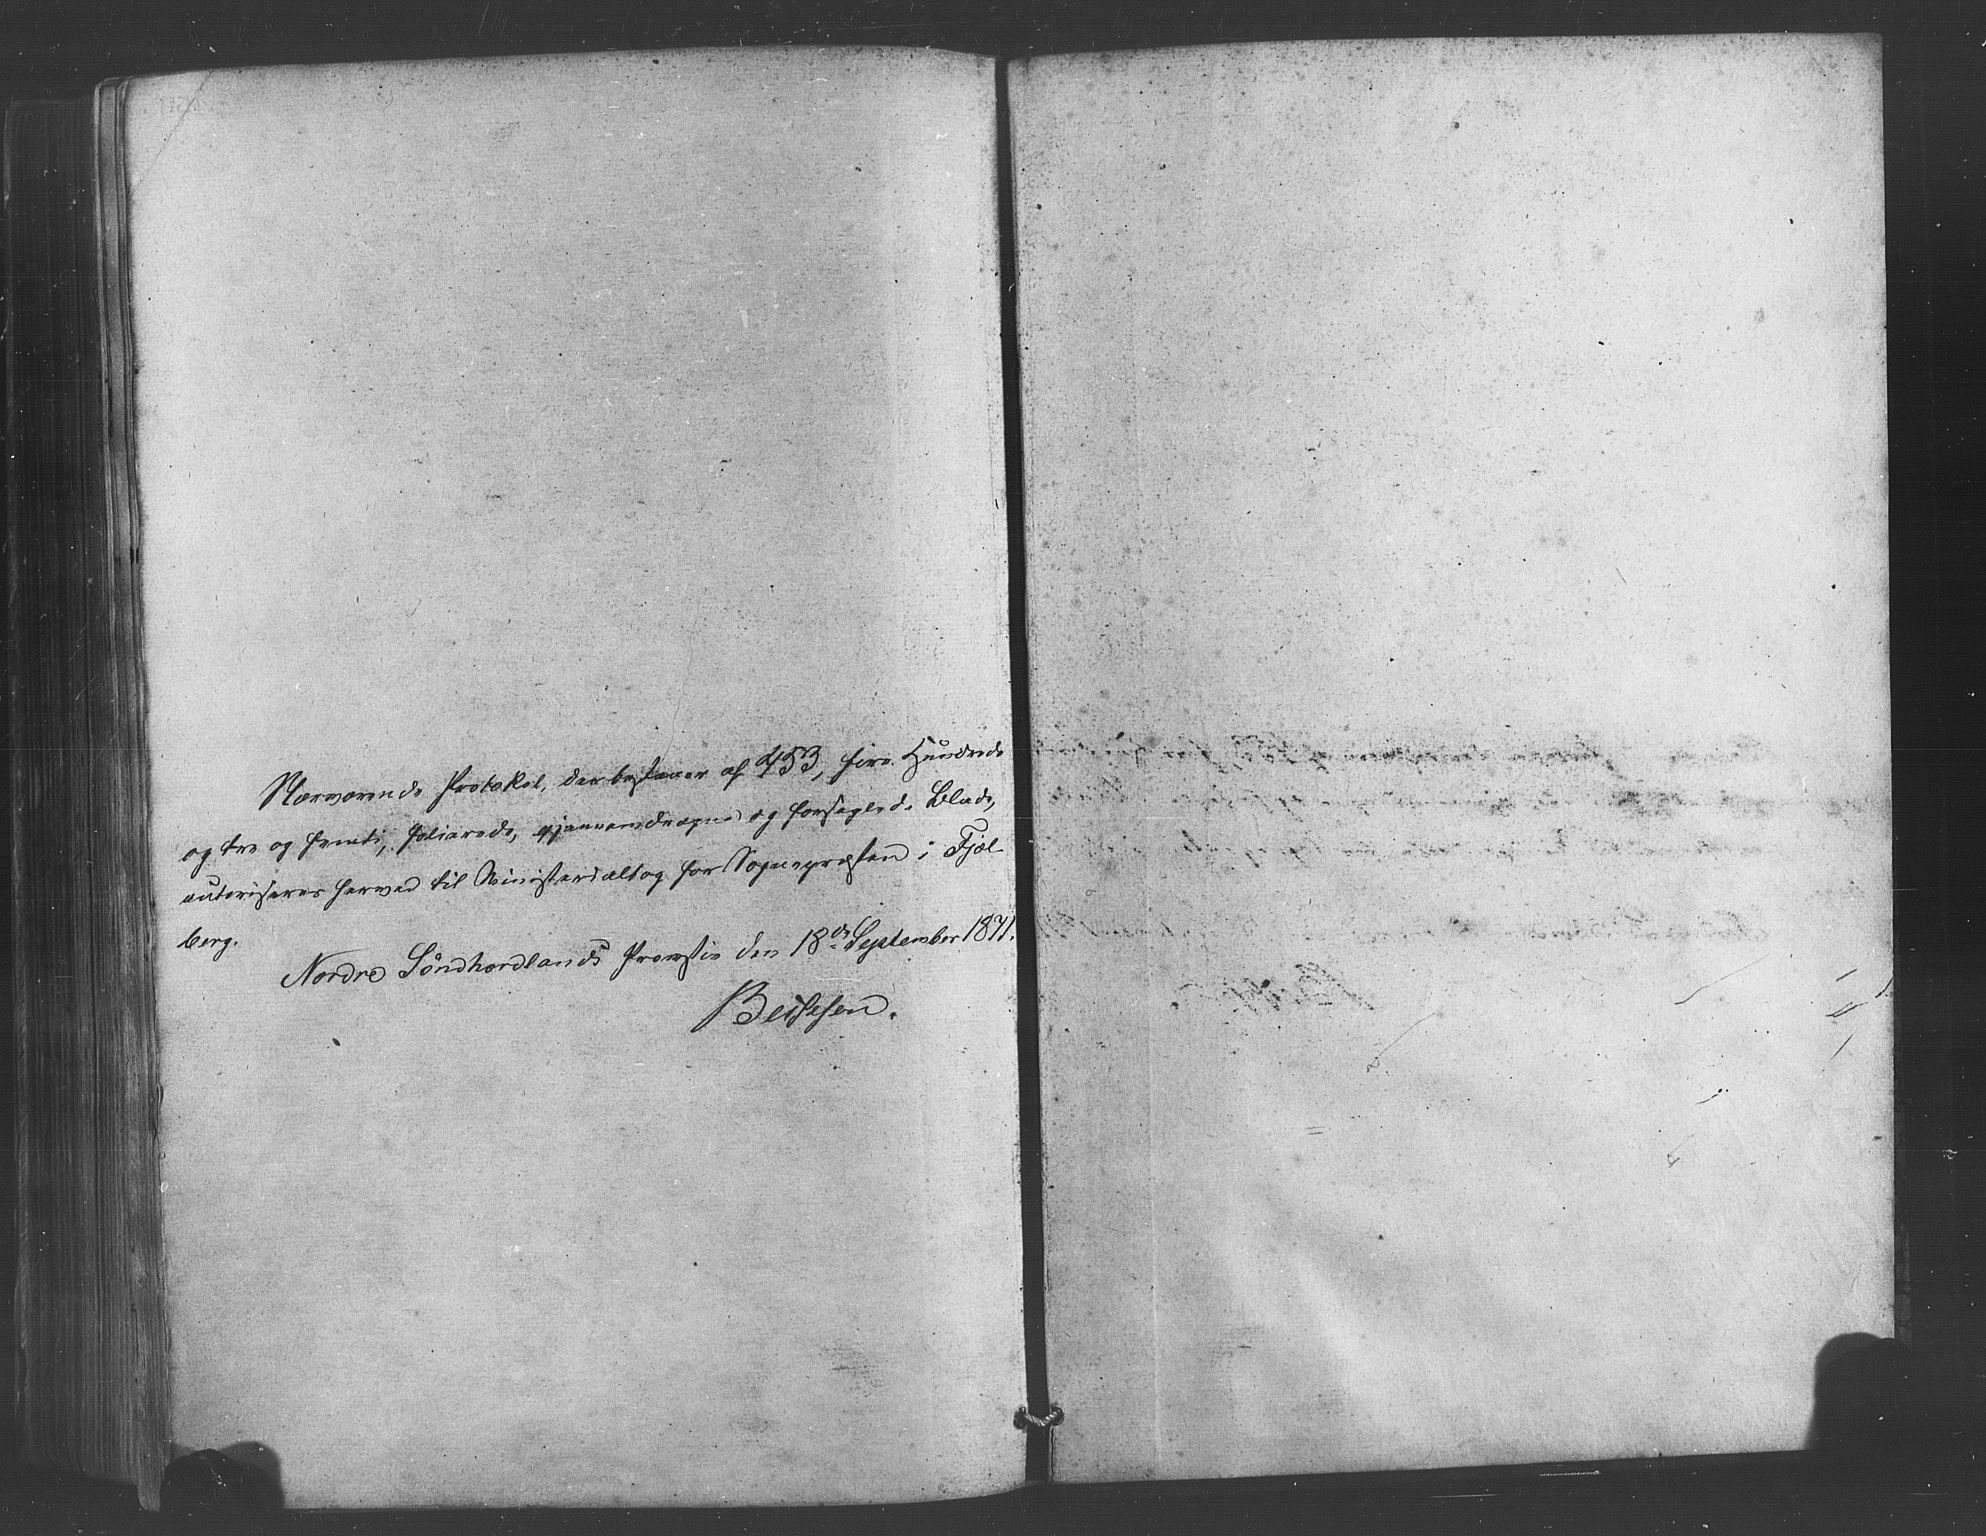 Nærværende Protokol, der bestaaer af 453, fire Hundrede
og tre og femti, folierede, gjennemdragne og forseglede Blade,
autoriseres herved til Ministerialbog for Sognepræsten i Fjæl-
berg.
Nordre Söndhordlands Provsti den 18de September 1871.